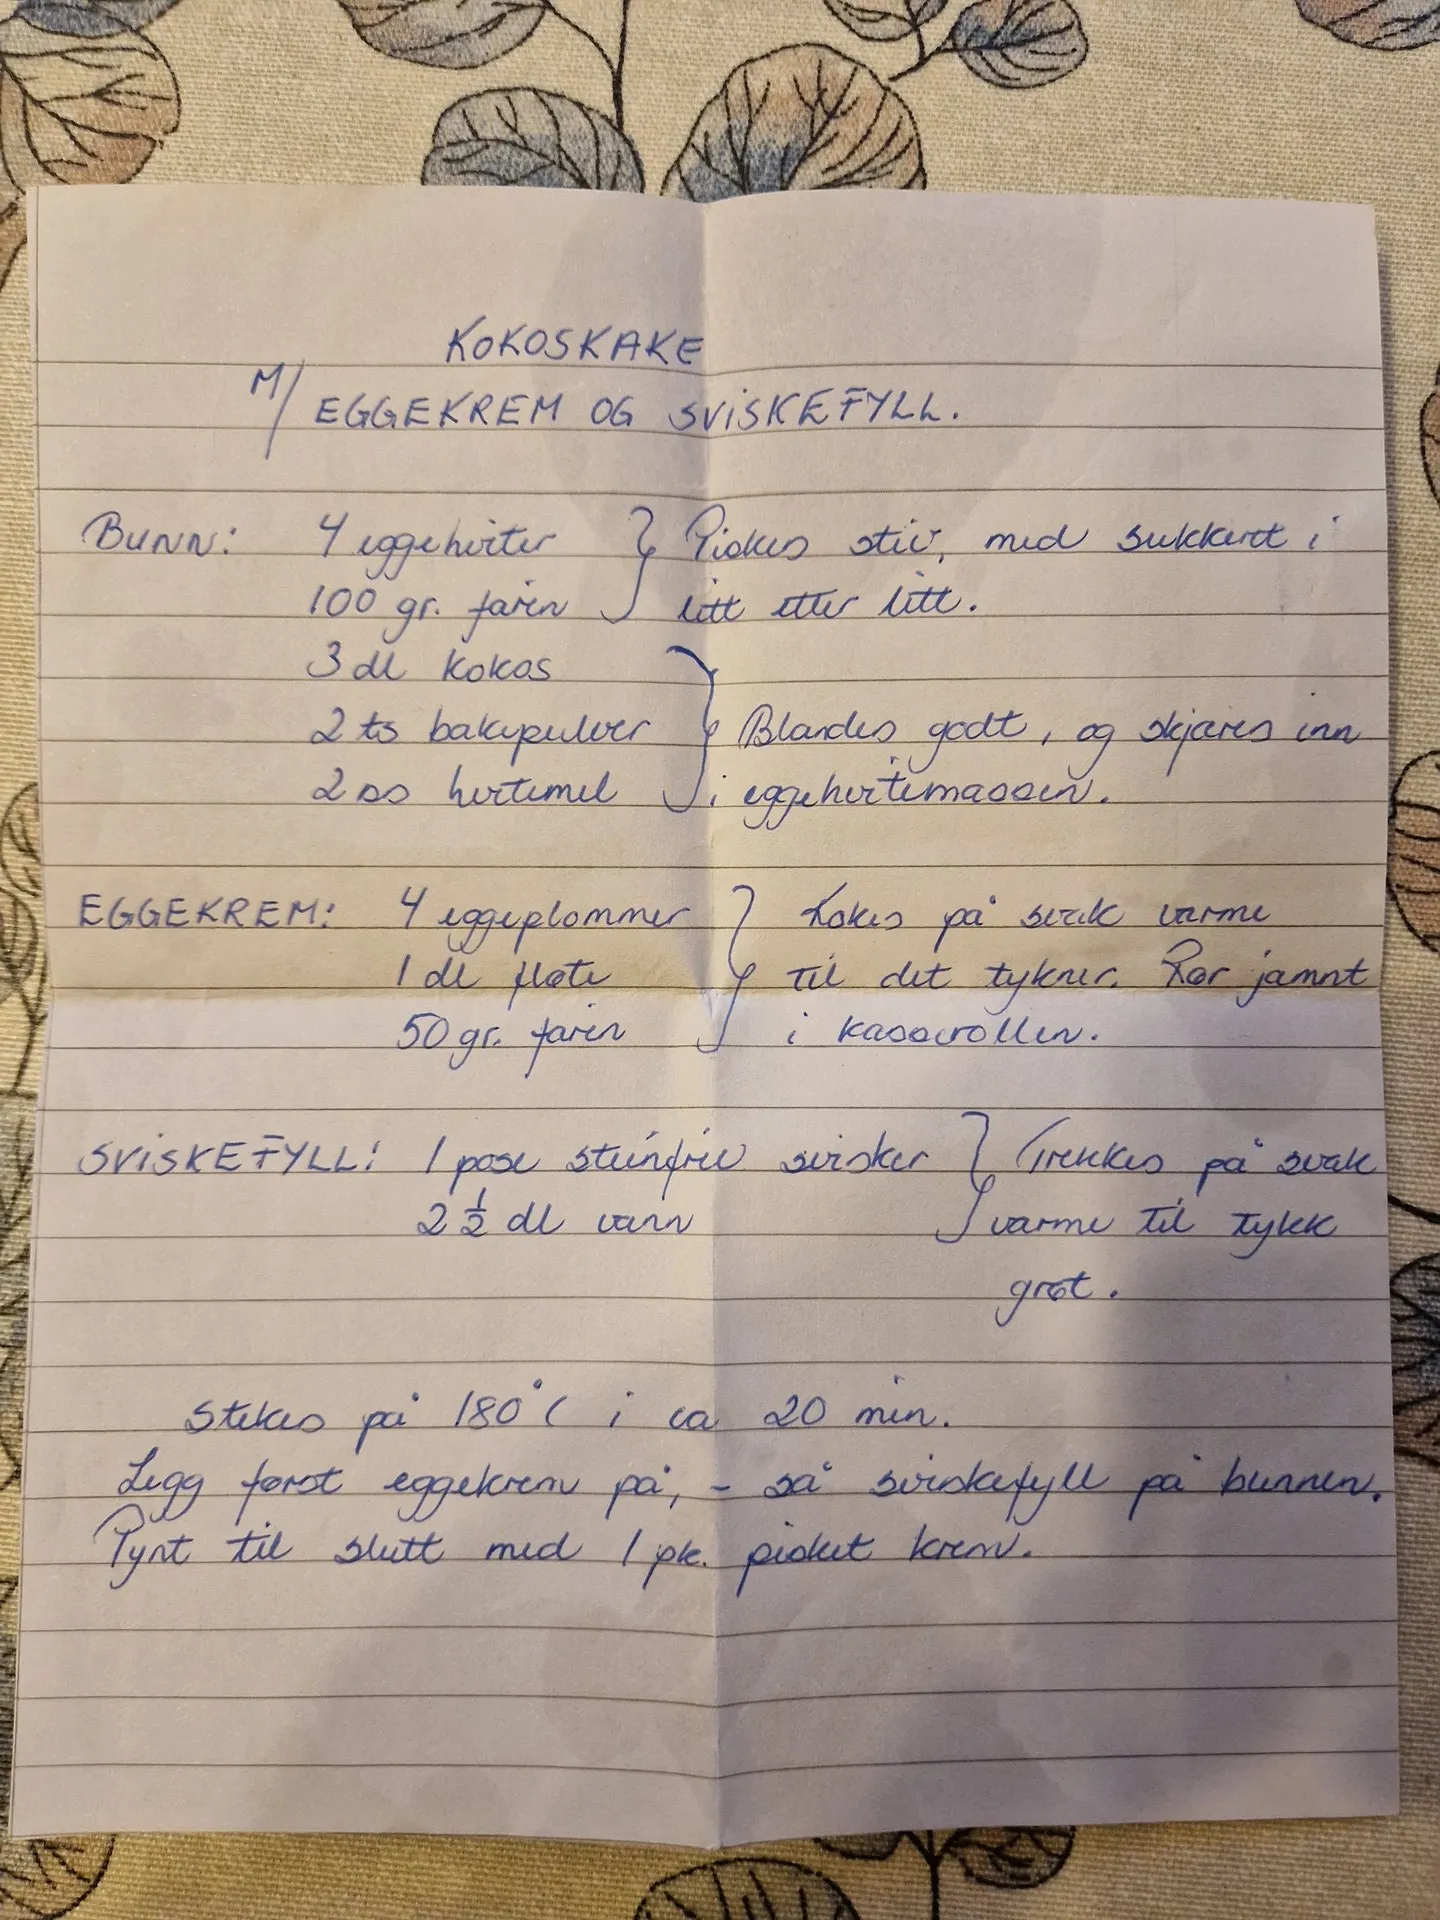 KOKOSKAKE
M/ EGGEKREM OG SVISKEFYLL.
BUNN: 4 eggehviter } Piskes stiv, med sukkeret i
100 gr. farin litt etter litt.
3 dl kokos
2 ts bakepulver } Blandes godt, og skjæres inn
2 ss hvetemel i eggehvitemassen.
EGGEKREM: 4 eggeplommer } Kokes på svak varme
1 dl fløte til det tykner. Rør jamnt
50 gr. farin i kasserollen.
SVISKEFYLL: 1 pose steinfrie svisker } Trekkes på svak
2 ½ dl vann varme til tykk
grøt.
Stekes på 180°C i ca 20 min.
Legg først eggekrem på, - så sviskefyll på bunnen.
Pynt til slutt med 1 pk. pisket krem.